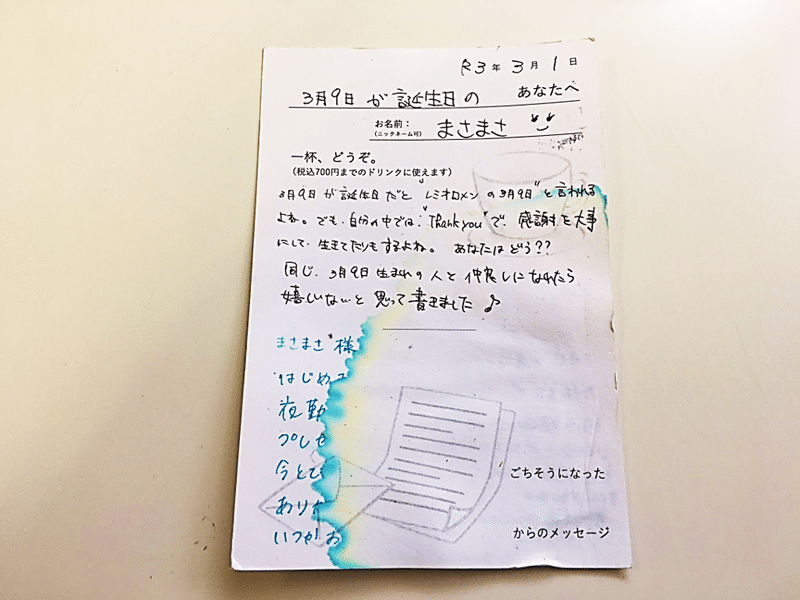 R3年 3月 1日
3月9日 が 誕生日 の あなたへ
お名前：
(ニックネーム可) まさまさ
一杯、どうぞ。
(税込700円までのドリンクに使えます)
3月9日 が 誕生日だと "レミオロメン の 3月9日" と 言われる
よね。でも、自分の中では、"Thank you" で、感謝を大事
にして、生きてたりもするよね。 あなたは どう??
同じ、3月9日 生まれ の 人 と 仲良しになれたら
嬉しいな と 思って 書きました♪
まさまさ 様
はじめ
夜勤
プレゼ
今とて
あり
いつか お
ごちそうになった
からのメッセージ